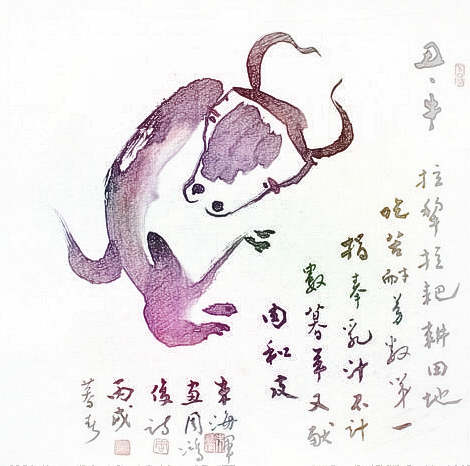 丑、牛
拉犁拉耙耕田地
吃苦耐劳数第一
奉乳汁不计
数暮年又献
肉和皮
东海
画周鸿
俊诗
丙戌
暮春